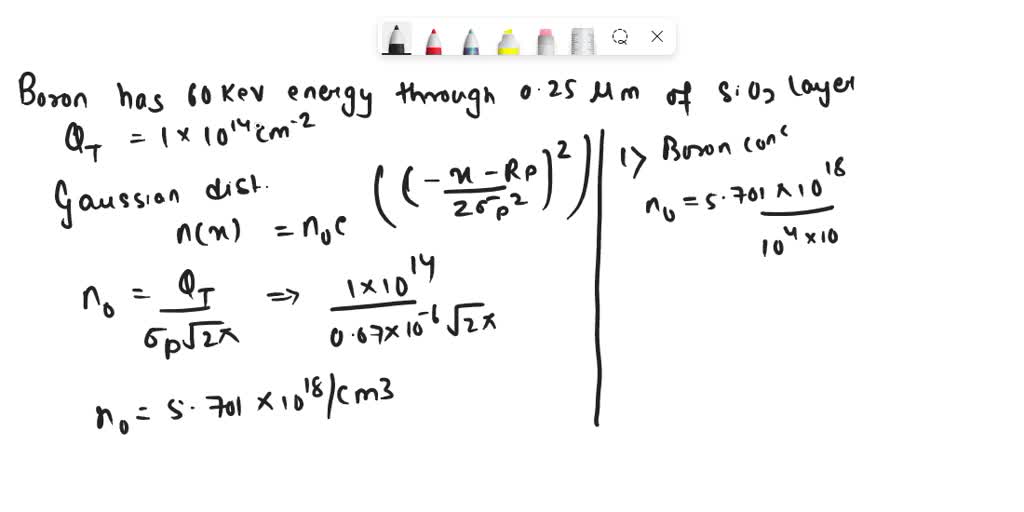 Boron has 60 Kev energy through 0.25 μm of SiO2 layer
Q_T = 1 × 10^14 cm^-2
Gaussian dist.
n(x) = n0e ((-x - Rp / 2σp^2)^2)
n0 = Q_T / σp√2π ⇒ 1×10^14 / 0.07×10^-6 √2π
n0 = 5.701 × 10^18 /cm3
1> Boron conc
n0 = 5.701 × 10^18 / 10^4 × 10